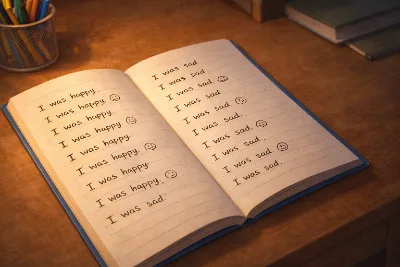 I was happy.
I was happy. ☺
I was happy.
I was happy. ☺
I was happy.
I was happy. ☺
I was happy.
I was happy. ☺
I was sad.
I was sad.
I was sad.
I was sad. ☺
I was sad
I was sad. ☹
I was sad.
I was sad. ☹
I was sad.
I was sad. ☹
I was sad.